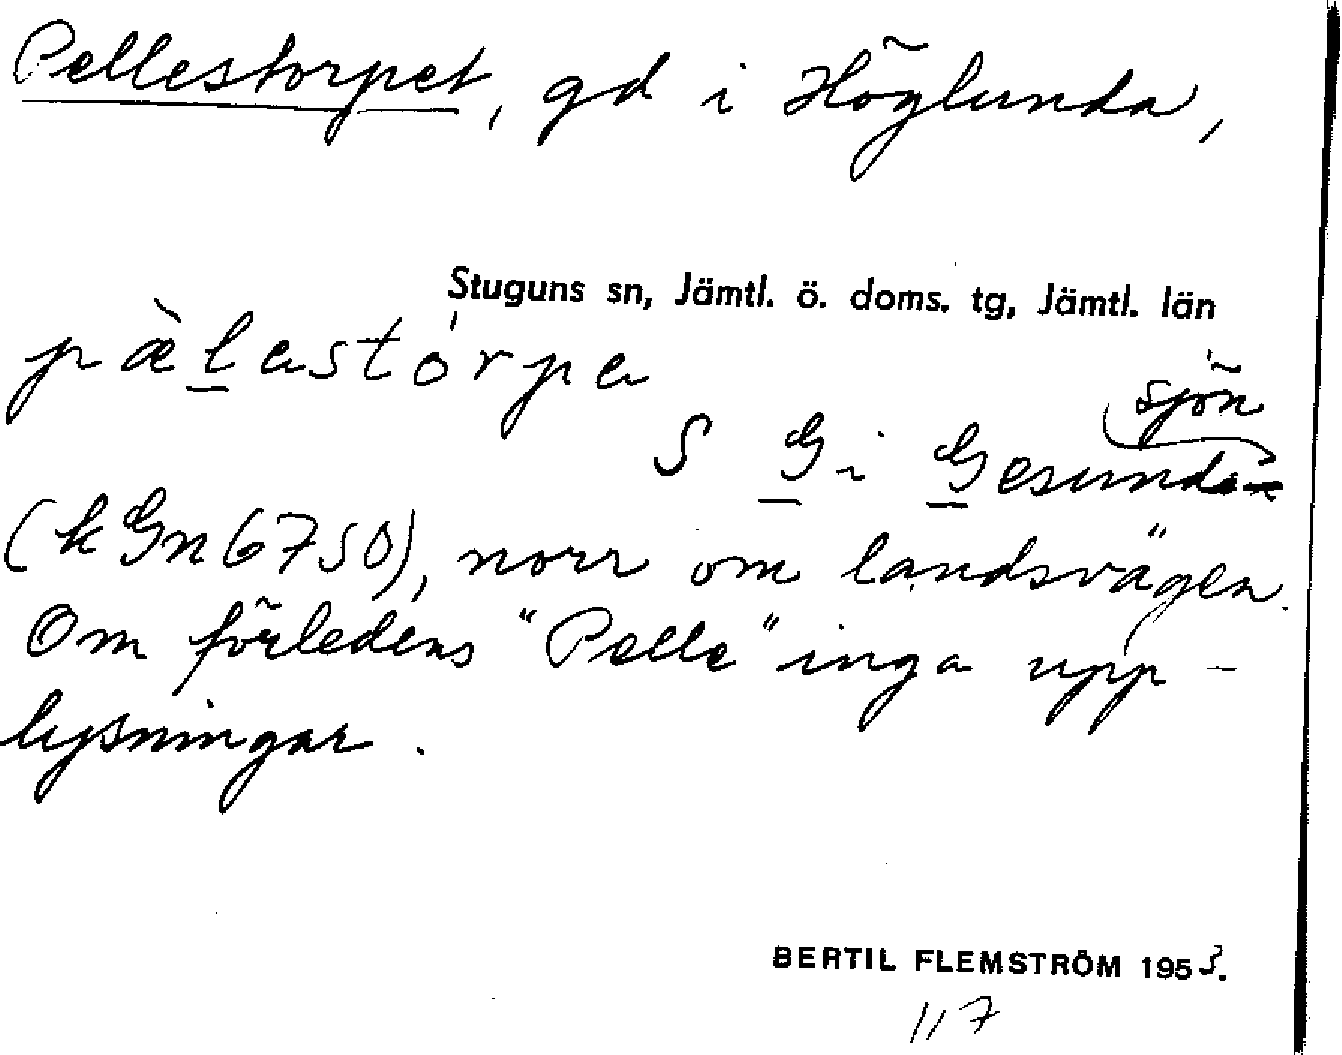 Pellestorpet, gd i Höglunda,
Stuguns sn, Jämtl. ö. doms. tg, Jämtl. län
pæ̀lastórpa
sjön
S G i Gesunda
(k Gn 6750), norr om landsvägen.
Om förledens "Pelle" inga upp-
lysningar.
BERTIL FLEMSTRÖM 1953.
117